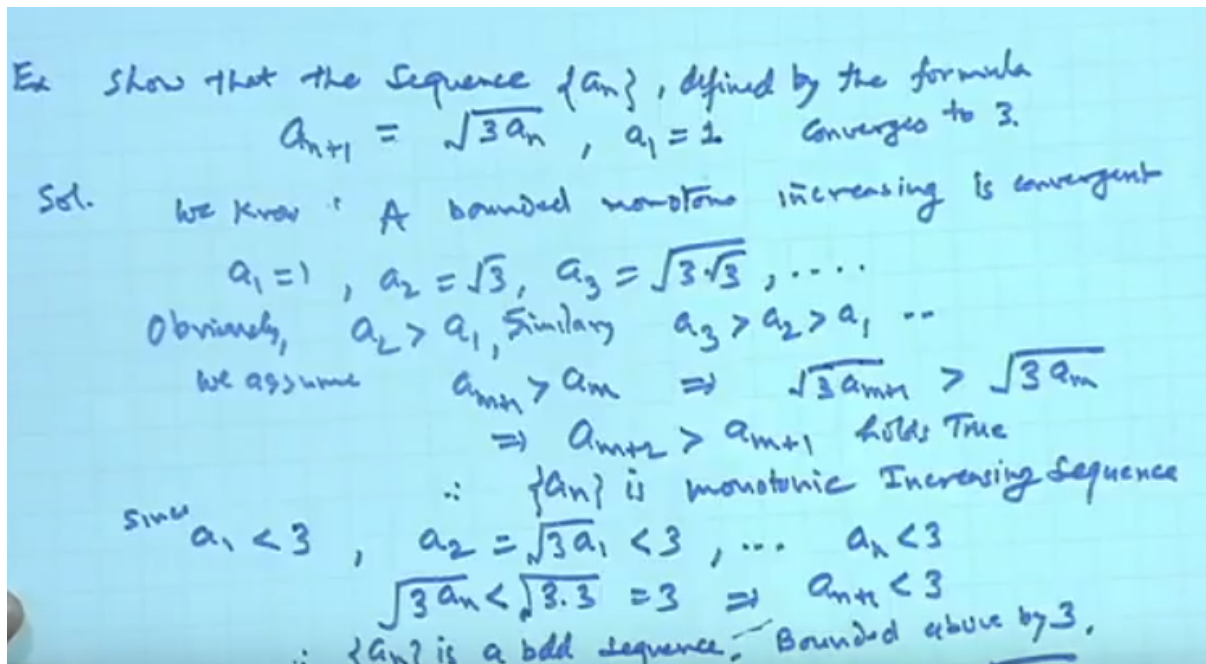 Ex Show that the Sequence {an}, defined by the formula
an+1 = √3an , a1 = 1 Converges to 3.
Sol. We know : A bounded monotone increasing is convergent
a1 = 1 , a2 = √3, a3 = √3.√3 , ....
Obviously, a2 > a1, Similary a3 > a2 > a1 ..
We assume am+1 > am ⇒ √3am+1 > √3am
⇒ am+2 > am+1 holds True
∴ {an} is monotonic Increasing Sequence
Since a1 < 3 , a2 = √3a1 < 3 , ... an < 3
√3an < √3.3 = 3 ⇒ an+1 < 3
∴ {an} is a bdd sequence. Bounded above by 3.